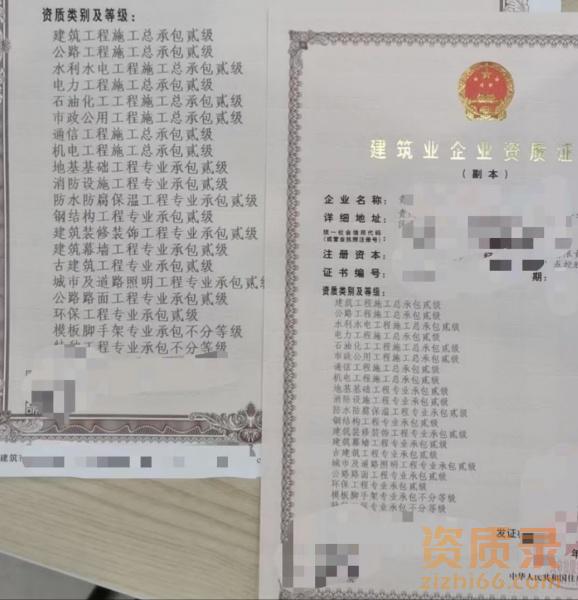 资质类别及等级：
建筑工程施工总承包贰级
公路工程施工总承包贰级
水利水电工程施工总承包贰级
电力工程施工总承包贰级
石油化工工程施工总承包贰级
市政公用工程施工总承包贰级
通信工程施工总承包贰级
机电工程施工总承包贰级
地基基础工程专业承包贰级
消防设施工程专业承包贰级
防水防腐保温工程专业承包贰级
钢结构工程专业承包贰级
建筑装修装饰工程专业承包贰级
建筑幕墙工程专业承包贰级
古建筑工程专业承包贰级
城市及道路照明工程专业承包贰级
公路路面工程专业承包贰级
环保工程专业承包贰级
模板脚手架专业承包不分等级
特种工程专业承包不分等级
建筑
建筑业企业资质证
（副本）
企业名称：
详细地址：
统一社会信用代码
(或营业执照注册号)：
注册资本：
证书编号：
期：
资质类别及等级：
建筑工程施工总承包贰级
公路工程施工总承包贰级
水利水电工程施工总承包贰级
电力工程施工总承包贰级
石油化工工程施工总承包贰级
市政公用工程施工总承包贰级
通信工程施工总承包贰级
机电工程施工总承包贰级
地基基础工程专业承包贰级
消防设施工程专业承包贰级
防水防腐保温工程专业承包贰级
钢结构工程专业承包贰级
建筑装修装饰工程专业承包贰级
建筑幕墙工程专业承包贰级
古建筑工程专业承包贰级
城市及道路照明工程专业承包贰级
公路路面工程专业承包贰级
环保工程专业承包贰级
模板脚手架专业承包不分等级
工程专业承包不分等级
发证
年
中华人民共和国住
资质录
zizhi66.com